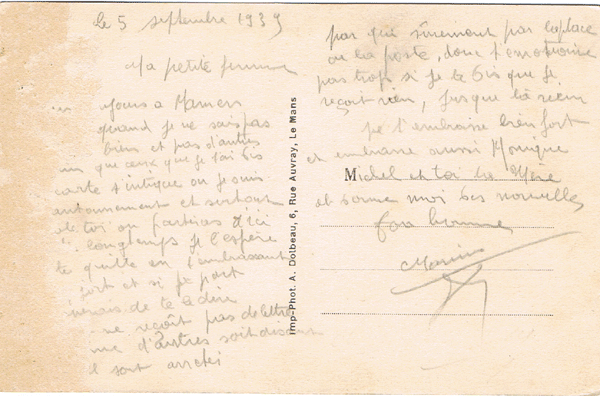 le 5 septembre 1939
Ma petite femme
jours a Mamers
quand je ne sais pas
bien et pas d'autres
que ceux que je t'ai dis
carte t'indique ou je suis
et surtout
de toi ou partirai d'ici
longtemps je l'espère
te quitte en t'embrassant
fort et si je part
de te le dire
ne reçoit pas de lettre
d'autres soit disant
sont arrêté
par qui sûrement par la place
ou la poste, donc
pas trop si je te dis que je
reçoit rien, jusque là
je t'embrasse bien fort
et embrasse aussi Monique
Michel et toi la Mère
et donne moi des nouvelles
Ton homme
Marius
Imp-Phot. A. Dolbeau, 6, Rue Auvray, Le Mans
M